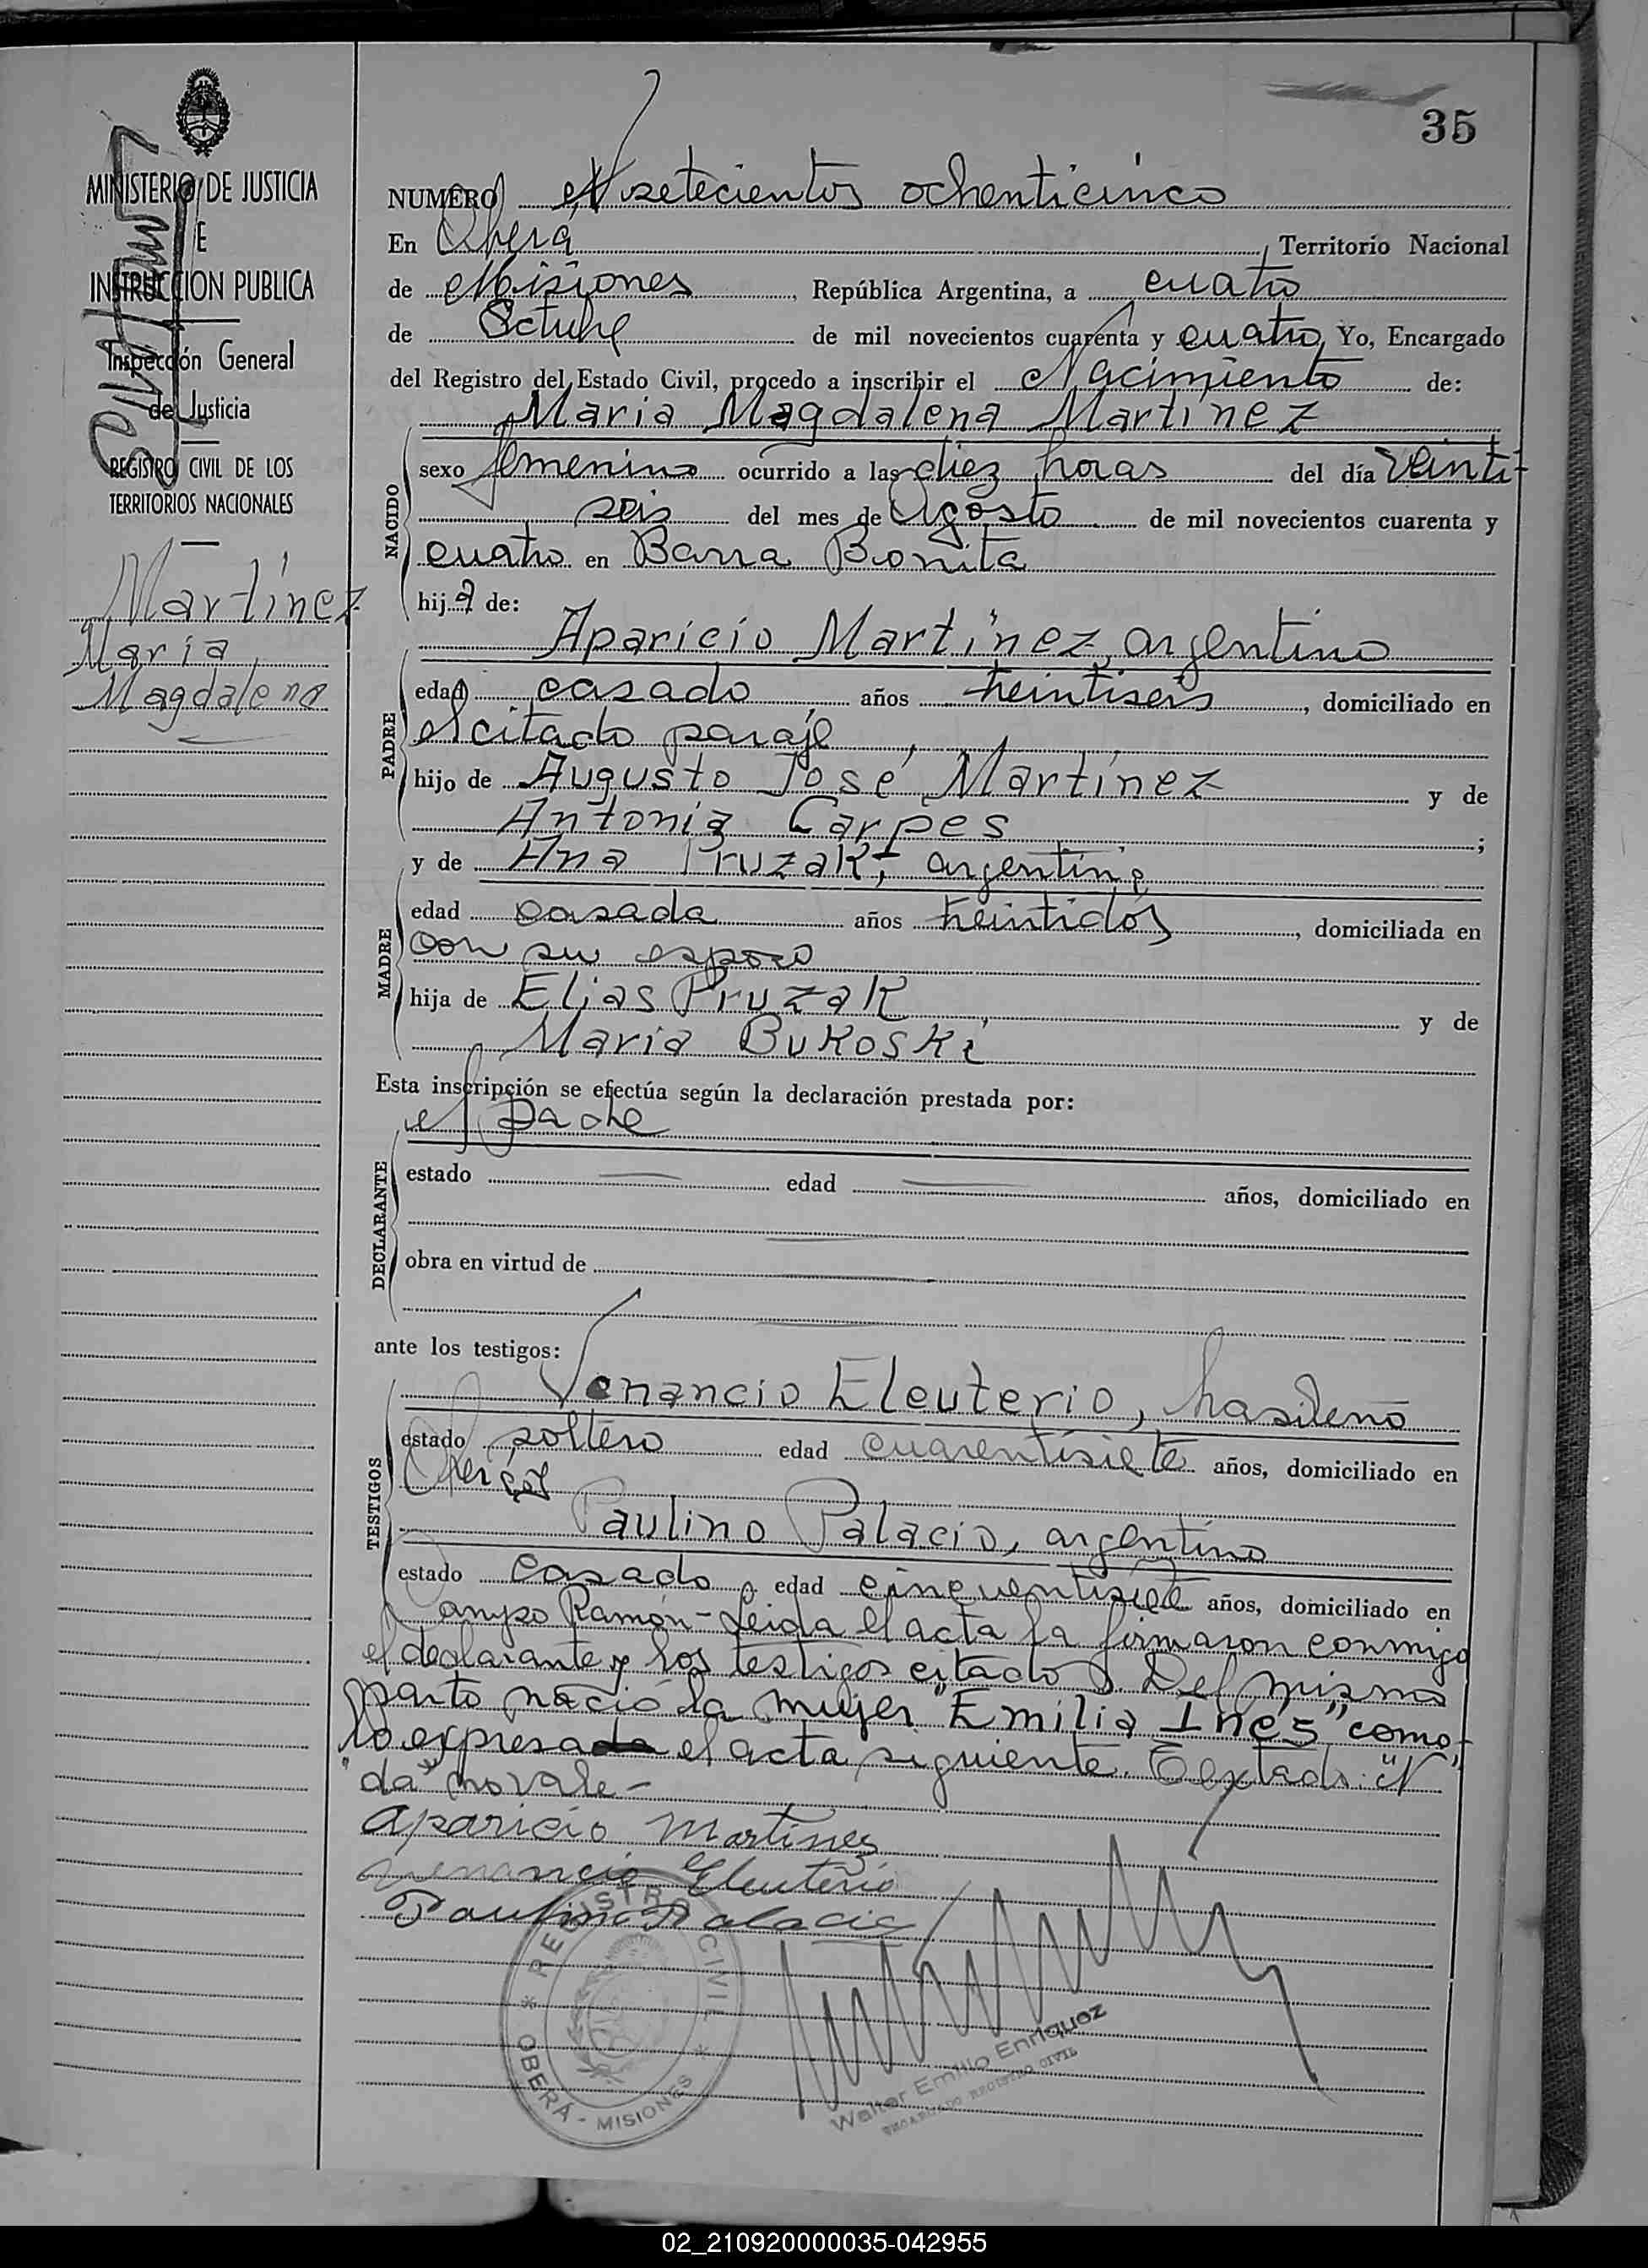 35
MINISTERIO DE JUSTICIA
E
INSTRUCCION PUBLICA
Inspección General
de Justicia
REGISTRO CIVIL DE LOS
TERRITORIOS NACIONALES
Martínez
María
Magdalena
NUMERO setecientos ochenticinco
En Oberá, Territorio Nacional
de Misiones, República Argentina, a cuatro
de Octubre de mil novecientos cuarenta y cuatro, Yo, Encargado
del Registro del Estado Civil, procedo a inscribir el Nacimiento de:
María Magdalena Martínez
NACIDO
sexo femenino ocurrido a las diez horas del día veinti-
seis del mes de Agosto de mil novecientos cuarenta y
cuatro en Barra Bonita
hija de:
PADRE
Aparicio Martínez, argentino
edad casado años treintiseis, domiciliado en
el citado paraje,
hijo de Augusto José Martínez y de
Antonia Carpes;
y de Ana Pruzak, argentina
MADRE
edad casada años treintidós, domiciliada en
con su esposo
hija de Elias Pruzak, y de
María Bukoski
Esta inscripción se efectúa según la declaración prestada por:
el padre
DECLARANTE
estado edad años, domiciliado en
obra en virtud de
ante los testigos:
TESTIGOS
Venancio Eleuterio, brasileno
estado soltero edad cuarentisiete años, domiciliado en
Oberá y
Paulino Palacio, argentino
estado casado, edad cincuentisiete años, domiciliado en
Campo Ramón - Leida el acta la firmaron conmigo
el declarante y los testigos citados. Del mismo
parto nació la mujer "Emilia Inés" como
lo expresada el acta siguiente. Testado: "N"
"da" no vale -
Aparicio Martinez
Venancio Eleuterio
Paulino Palacio
REGISTRO CIVIL
* OBERÁ - MISIONES *
Walter Emilio Enriquez
ENCARGADO REGISTRO CIVIL
02_210920000035-042955